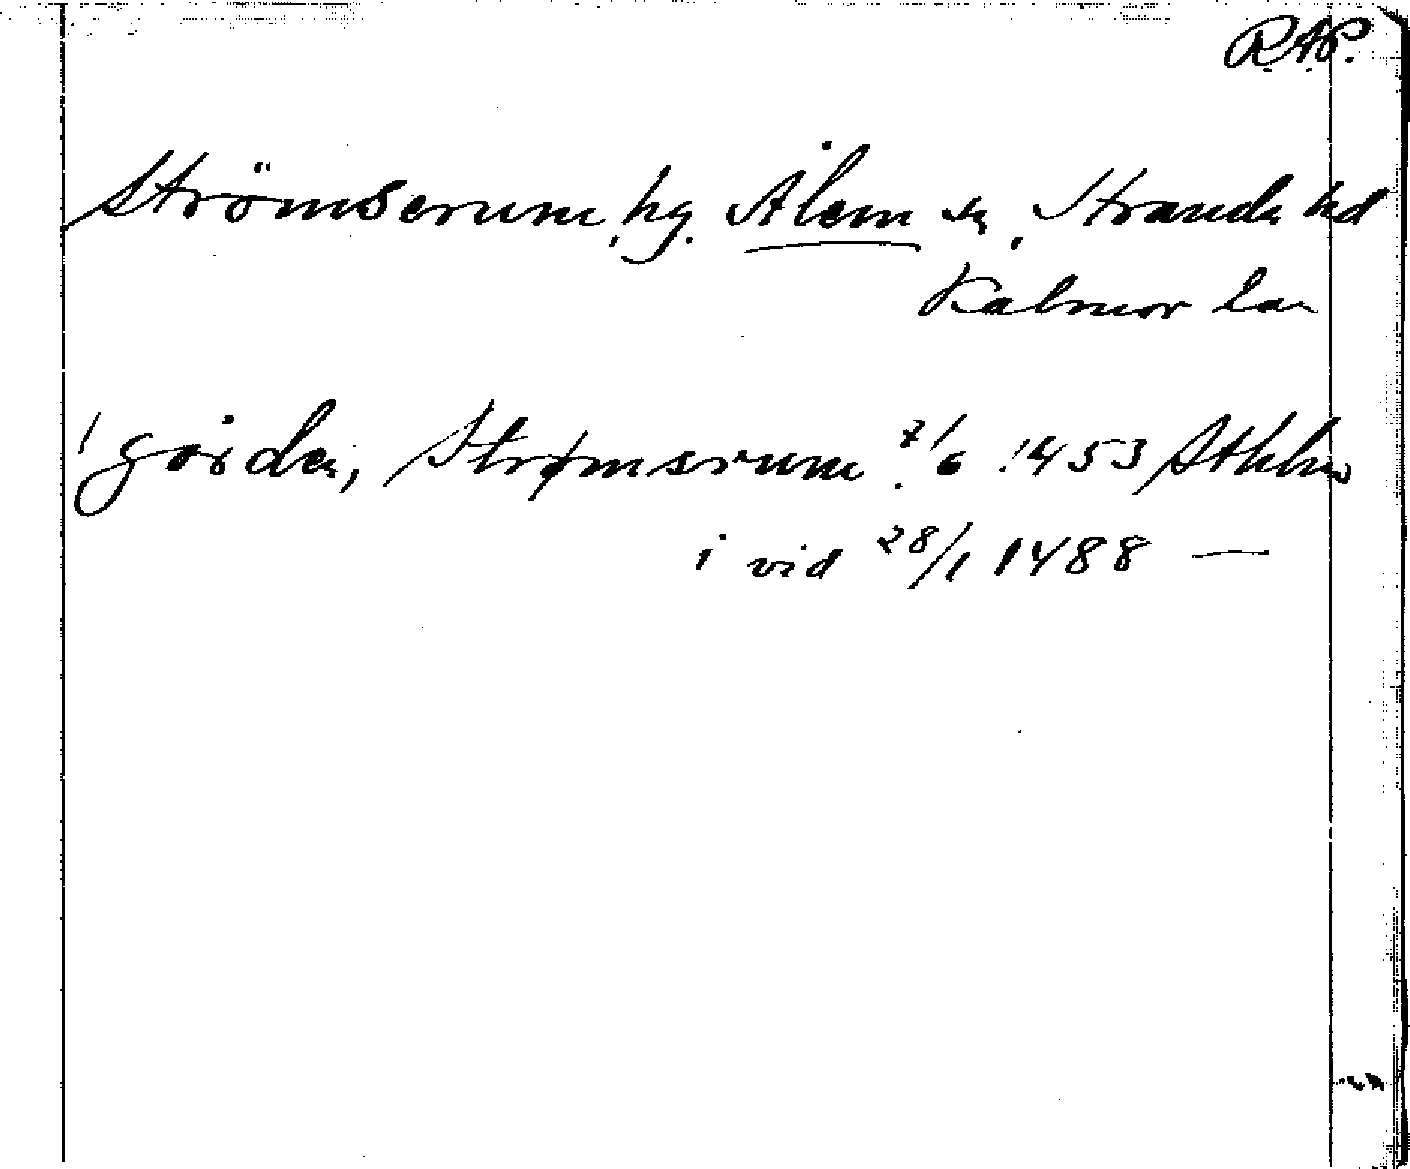 R.A.P.
Strömserum, hg. Ålem sn, Stranda hd
Kalmar län
i gården, Strømsrum 7/6 1453 Sthlm
i vid 28/1 1488 —